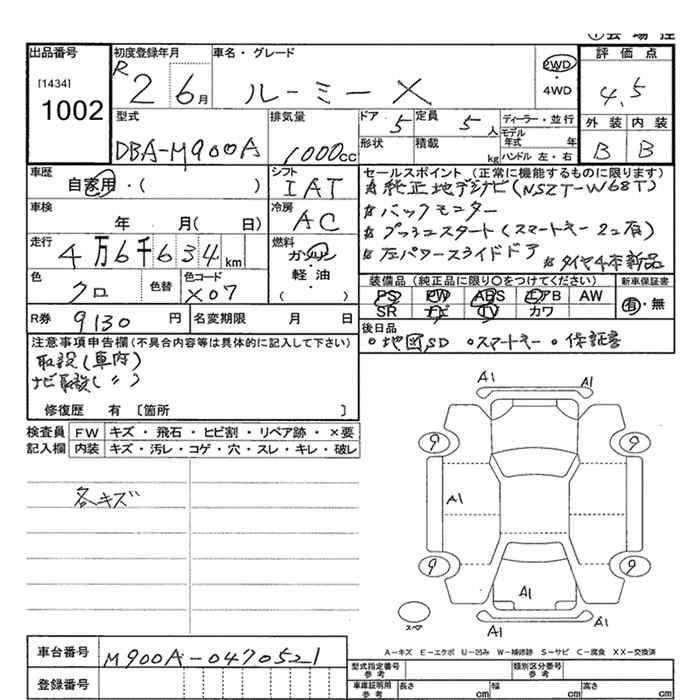 出品番号
[1434]
1002
初度登録年月
R 2 6月
車名・グレード
ルーミー X
2WD
・
4WD
評価点
4.5
外装 内装
B B
型式
DBA-M900A
排気量
1000cc
ドア 5
定員 5人
形状
積載 kg
ディーラー・並行
モデル年式 年
ハンドル 左・右
車歴
自家用・( )
シフト
IAT
車検
年 月( 日)
冷房
AC
走行
4万6千634km
燃料
ガソリン
・
軽・油
( )
色
クロ
色替
色コード
X07
R券 9130円
名変期限 月 日
セールスポイント(正常に機能するものに限ります)
☆純正地デジナビ(NSZT-W68T)
☆バックモニター
☆プッシュスタート(スマートキー2コ有)
☆左パワースライドドア ☆タイヤ4本新品
装備品(純正品に限り○をつけてください)
PS PW ABS エアB AW
SR ナビ TV カワ
新車保証書
有・無
後日品
。地図SD 。スマートキー 。保証書
注意事項申告欄(不具合内容等は具体的に記入して下さい)
取説(車内)
ナビ取説(〃)
修復歴 有 [箇所 ]
検査員 FW キズ・飛石・ヒビ割・リペア跡・×要
記入欄 内装 キズ・汚レ・コゲ・穴・スレ・キレ・破レ
各キズ
A1 A1
9 9
A1
9 9
A1
スペア
A1 A1
A−キズ E−エクボ U−凹み W−補修跡 S−サビ C−腐食 XX−交換済
車台番号 M900A-0470521
登録番号
型式指定番号
参考
類別区分番号
参考
車庫証明用
参考
長さ cm
幅 cm
高さ cm